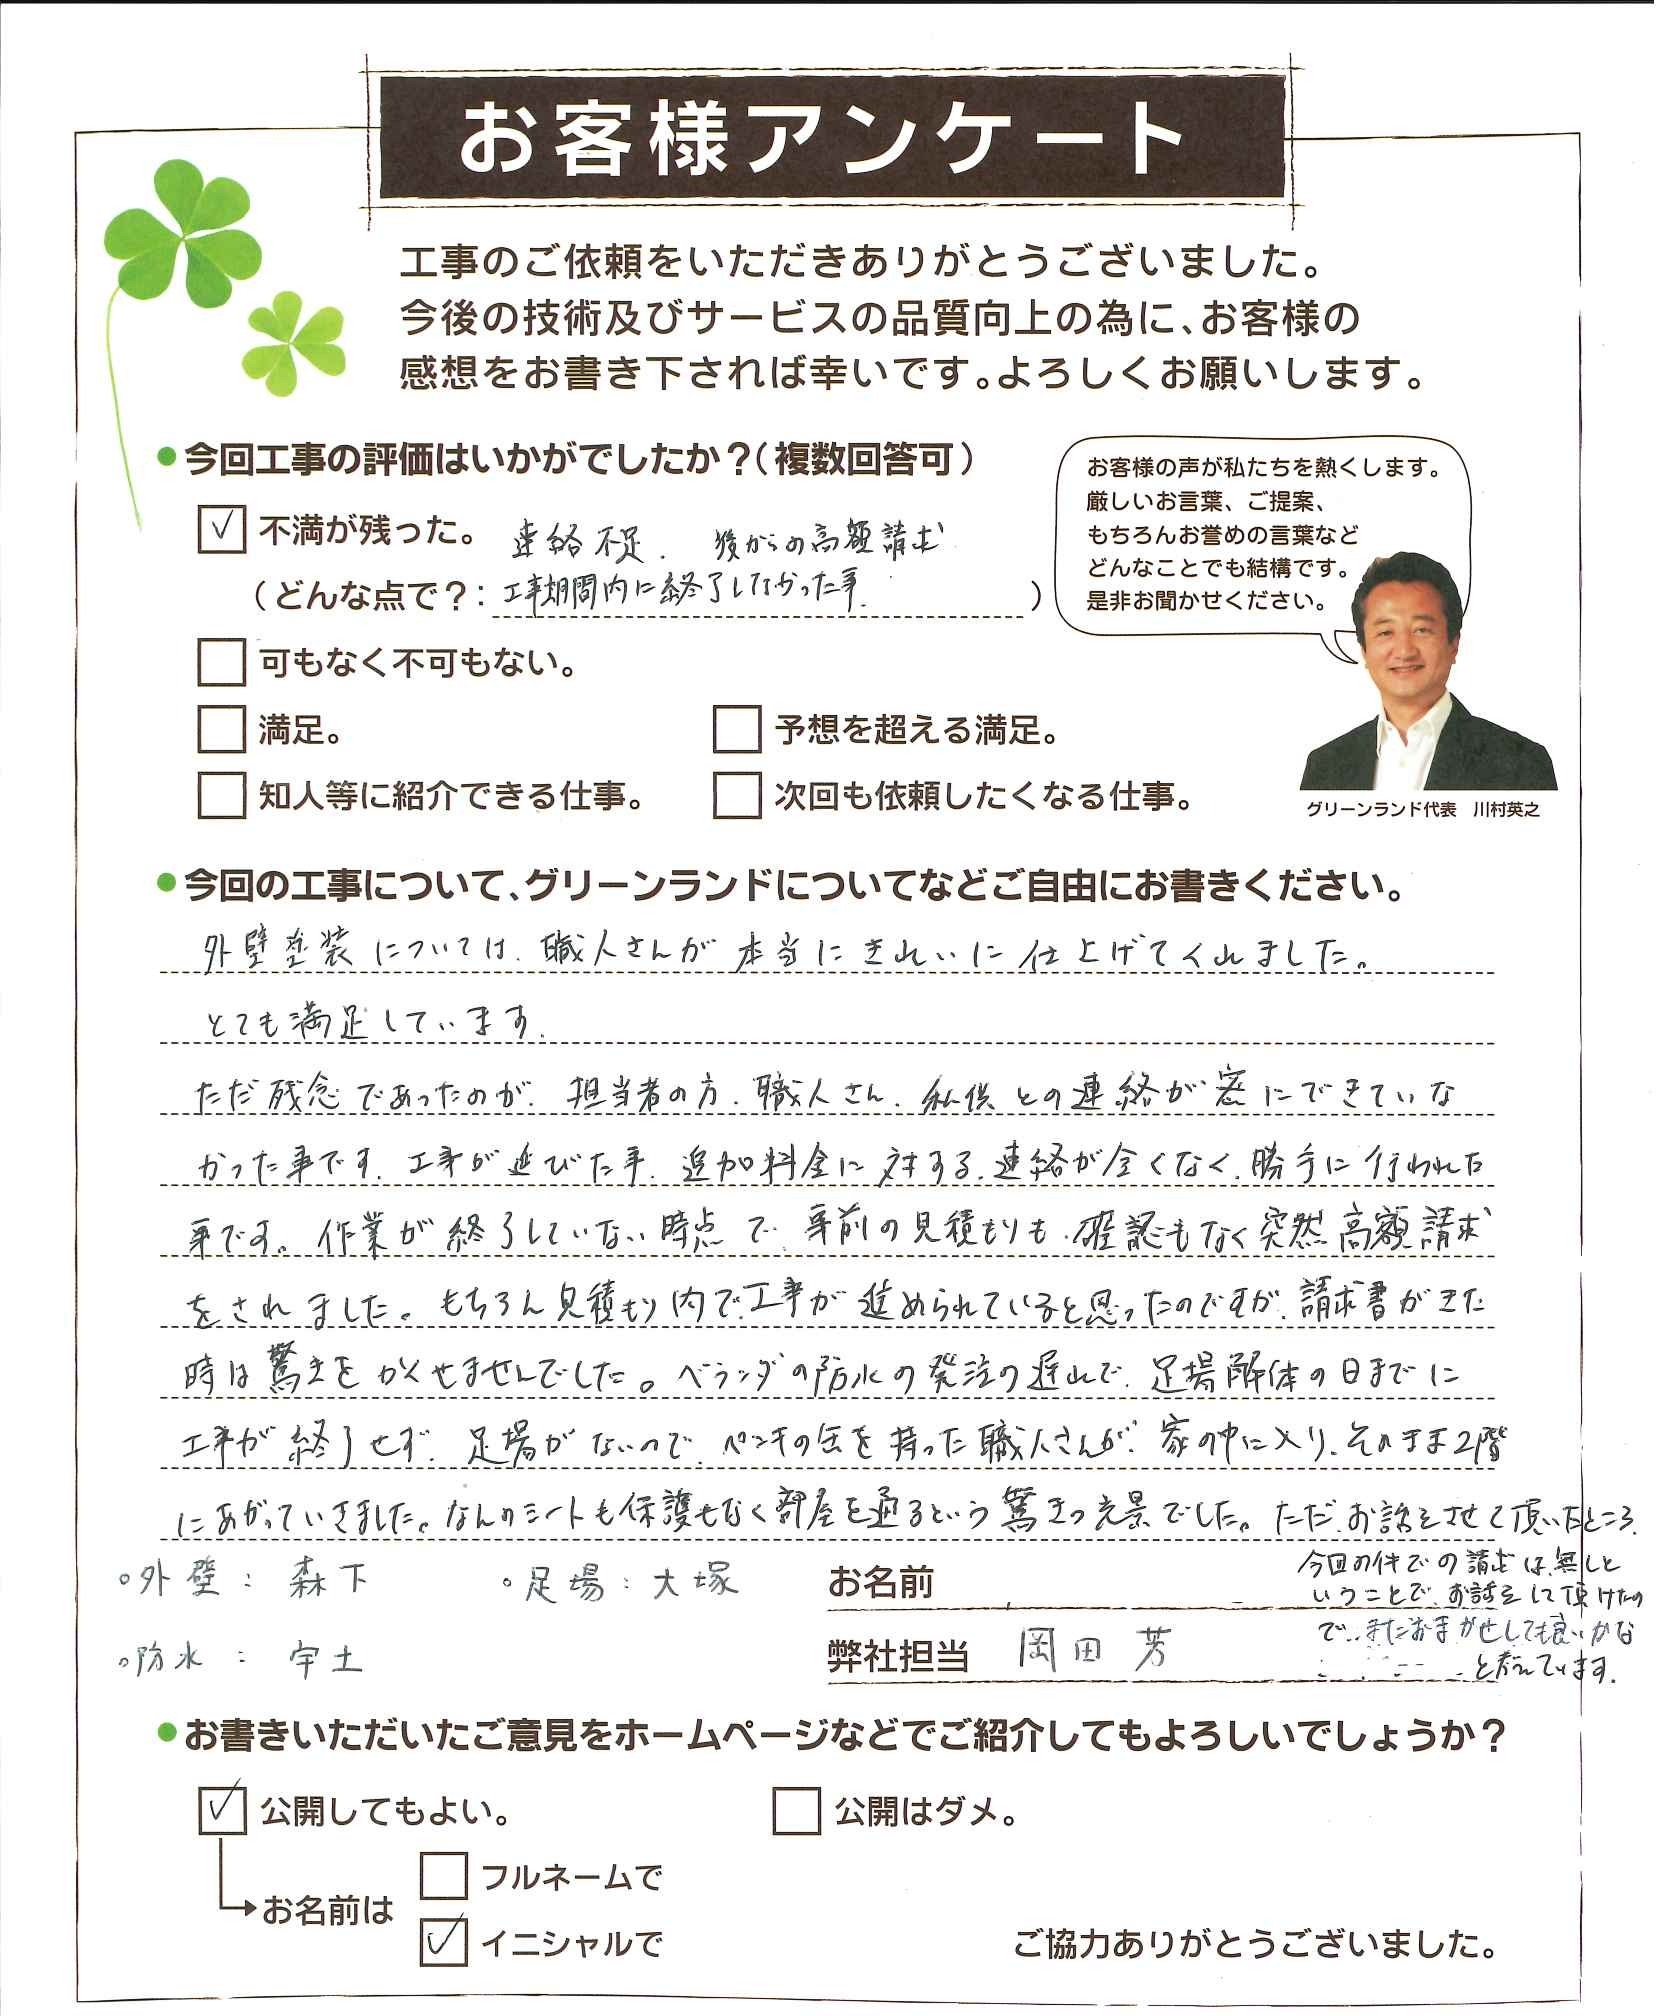 お客様アンケート
工事のご依頼をいただきありがとうございました。
今後の技術及びサービスの品質向上の為に、お客様の
感想をお書き下されば幸いです。よろしくお願いします。
●今回工事の評価はいかがでしたか？（複数回答可）
お客様の声が私たちを熱くします。
厳しいお言葉、ご提案、
もちろんお誉めの言葉など
どんなことでも結構です。
是非お聞かせください。
✓ 不満が残った。 連絡不足. 後からの高額請求
（どんな点で？： 工事期間内に終了しなかった事. ）
可もなく不可もない。
満足。 予想を超える満足。
知人等に紹介できる仕事。 次回も依頼したくなる仕事。
グリーンランド代表 川村英之
●今回の工事について、グリーンランドについてなどご自由にお書きください。
外壁塗装については、職人さんが本当にきれいに仕上げてくれました。
とても満足しています.
ただ残念であったのが、担当者の方、職人さん、私供との連絡が密にできていな
かった事です. 工事が延びた事、追加料金に対する連絡が全くなく、勝手に行われた
事です。作業が終了していない時点で、事前の見積もりも、確認もなく突然高額請求
をされました。もちろん見積もり内で工事が進められていると思ったのですが、請求書がきた
時は驚きをかくせませんでした。ベランダの防水の発注の遅れで、足場解体の日までに
工事が終了せず、足場がないので、ペンキの缶を持った職人さんが、家の中に入り、そのまま2階
にあがっていきました。なんのシートも保護もなく部屋を通るという驚きの光景でした。ただ、お話をさせて頂いたところ、
今回の件での請求は、無しと
いうことで、お話をして頂けたの
で、またおまかせしても良いかな
と考えています.
○外壁： 森下 ○足場：大塚
○防水： 宇土
お名前
弊社担当 岡田 芳
●お書きいただいたご意見をホームページなどでご紹介してもよろしいでしょうか？
✓ 公開してもよい。 公開はダメ。
お名前は
フルネームで
✓ イニシャルで
ご協力ありがとうございました。